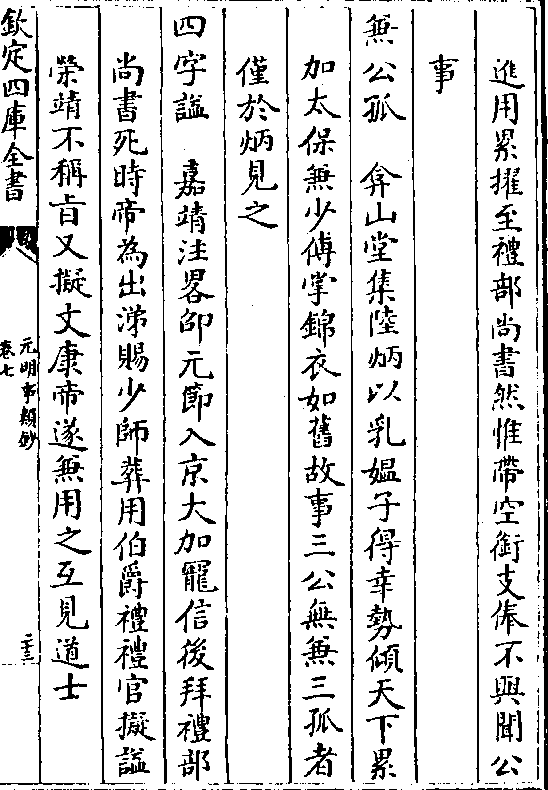 進用累擢至禮部尚書然惟帶空銜支俸不與聞公
事
兼公孤　弇山堂集陸炳以乳媼子得幸勢傾天下累
加太保兼少傅掌錦衣如舊故事三公無兼三孤者
僅於炳見之
四字謚　嘉靖注畧邵元節入京大加寵信後拜禮部
尚書死時帝為出涕賜少師葬用伯爵禮禮官擬謚
榮靖不稱㫖又擬文康帝遂兼用之互見道士
欽定四庫全書
元明事類鈔
卷七
二十三